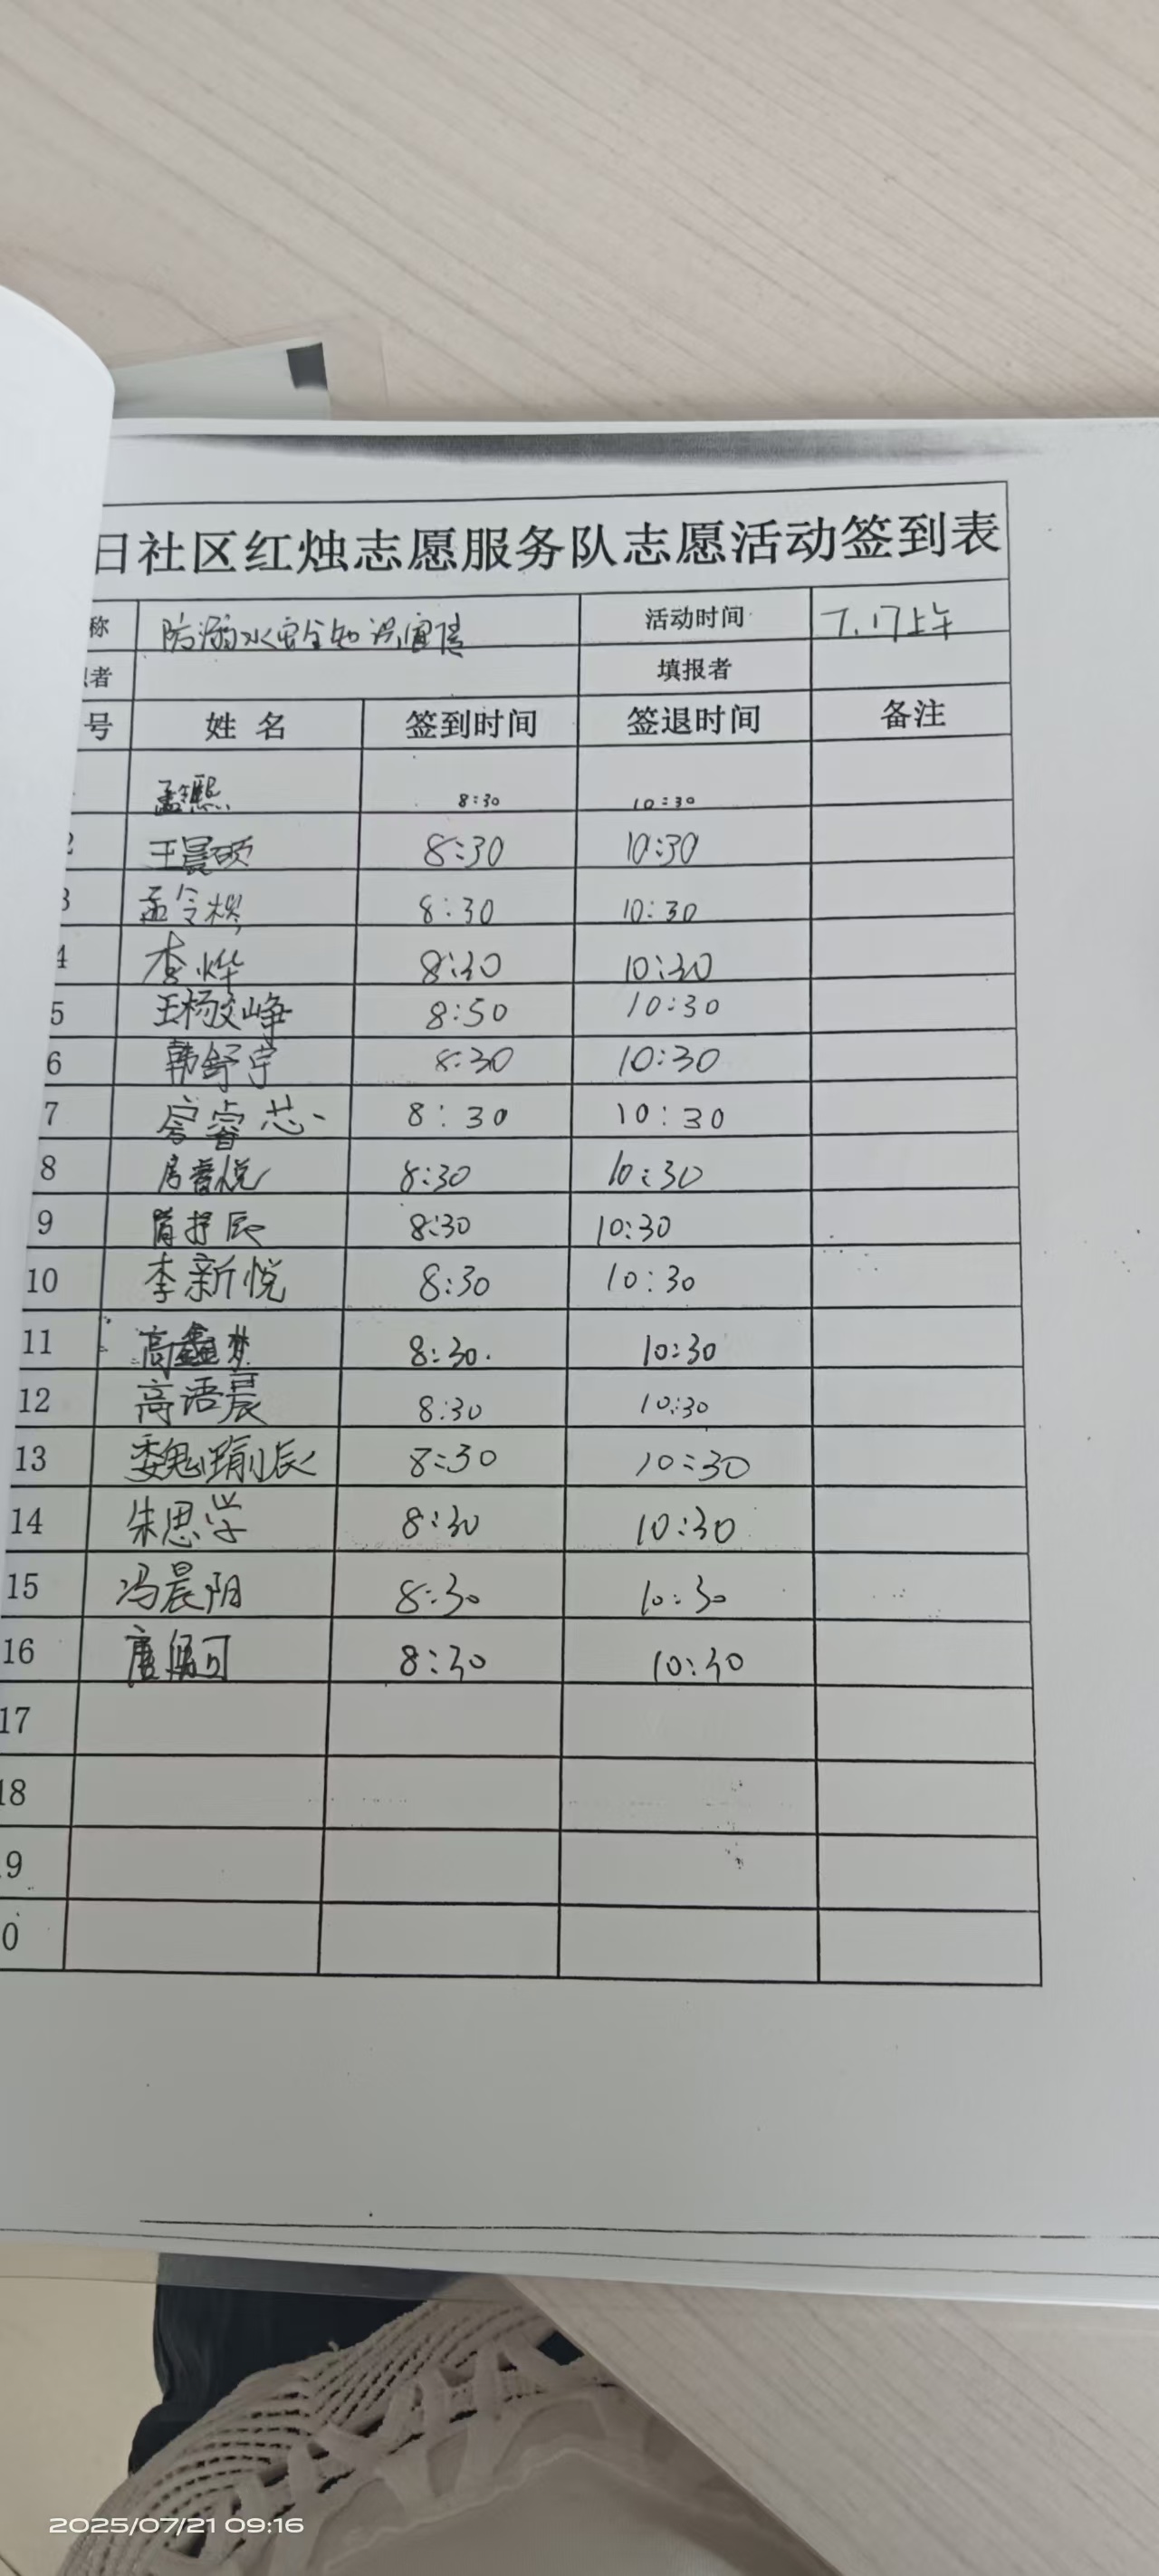 日社区红烛志愿服务队志愿活动签到表
称 防溺水安全知识宣传 活动时间 7.17上午
者 填报者
号 姓 名 签到时间 签退时间 备注
孟熙 8:30 10:30
2 王晨硕 8:30 10:30
3 孟令 8:30 10:30
4 李烨 8:30 10:30
5 王杨文峥 8:50 10:30
6 韩舒宇 8:30 10:30
7 睿芯 8:30 10:30
8 房睿悦 8:30 10:30
9 辰 8:30 10:30
10 李新悦 8:30 10:30
11 高鑫梦 8:30 10:30
12 高语晨 8:30 10:30
13 魏瑜辰 8:30 10:30
14 朱思学 8:30 10:30
15 冯晨阳 8:30 10:30
16 唐可 8:30 10:30
17
18
9
0
2025/07/21 09:16